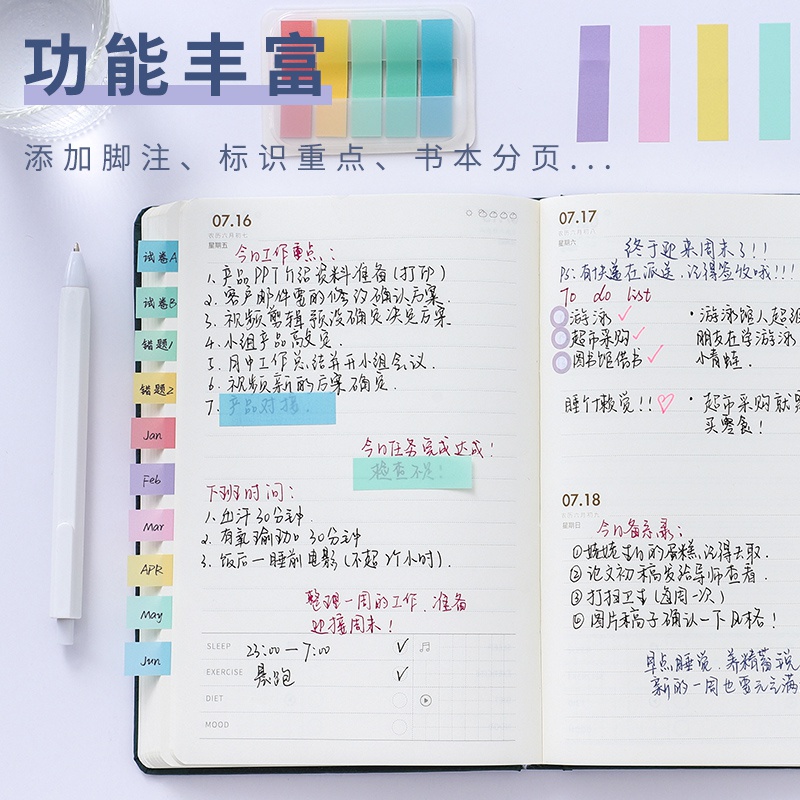 功能丰富
添加脚注、标识重点、书本分页...
试卷A
试卷B
错题1
错题2
Jan
Feb
Mar
APR
May
Jun
07.16
农历六月初七
星期五
今日工作重点:
1. 产品PPT介绍资料准备(打印)
2. 客户邮件需的修改确认后案.
3. 视频剪辑预设确定决定后案
4. 小组产品高效定.
5. 月中工作总结并开小组会议.
6. 视频新的后案确定.
7. 产品对接.
今日任务完成达成!
检查不足!
下班时间:
1. 出汗30分钟.
2. 有氧瑜劲口30分钟
3. 饭后一睡前电影(不超2个小时).
整理一周的工作,准备
迎接周末!
SLEEP 23:00—7:00
EXERCISE 晨跑
DIET
MOOD
07.17
农历六月初八
星期六
终于迎来周末了!!
PS:有快递在派送,记得签收哦!!!
To do list
游泳
超市采购
图书馆借书
·游泳馆人超级
朋友在学游泳
小青蛙.
睡个懒觉!!
·超市采购就是
买零食!
07.18
农历六月初九
星期日
今日备忘录:
①姥姥生日的蛋糕,记得去取.
②论文初稿发给导师查看.
③打扫卫生(每周一次)
④图片稿子确认一下风格!
早点睡觉,养精蓄锐
新的一周也要元气满